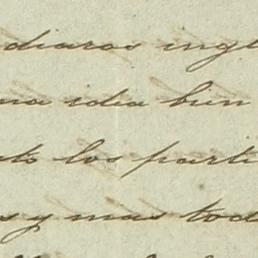 diaros ingl
na idea bien
to los parti
s y mas tod